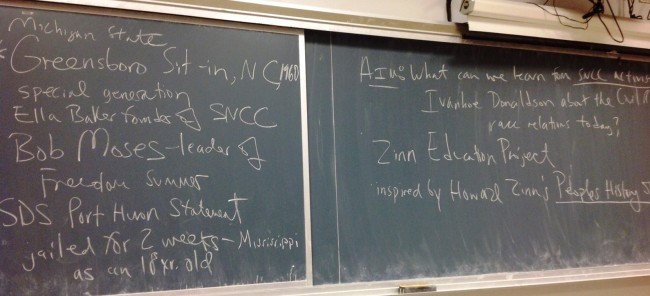 Michigan State
* Greensboro Sit-in, NC, 1960
special generation
Ella Baker founder of SNCC
Bob Moses - leader of
Freedom Summer
SDS Port Huron Statement
jailed for 2 weeks - Mississippi
as an 18 yr. old
AIM: What can we learn from SNCC activis
Ivanhoe Donaldson about the Civil R
race relations today?
Zinn Education Project
inspired by Howard Zinn's Peoples History